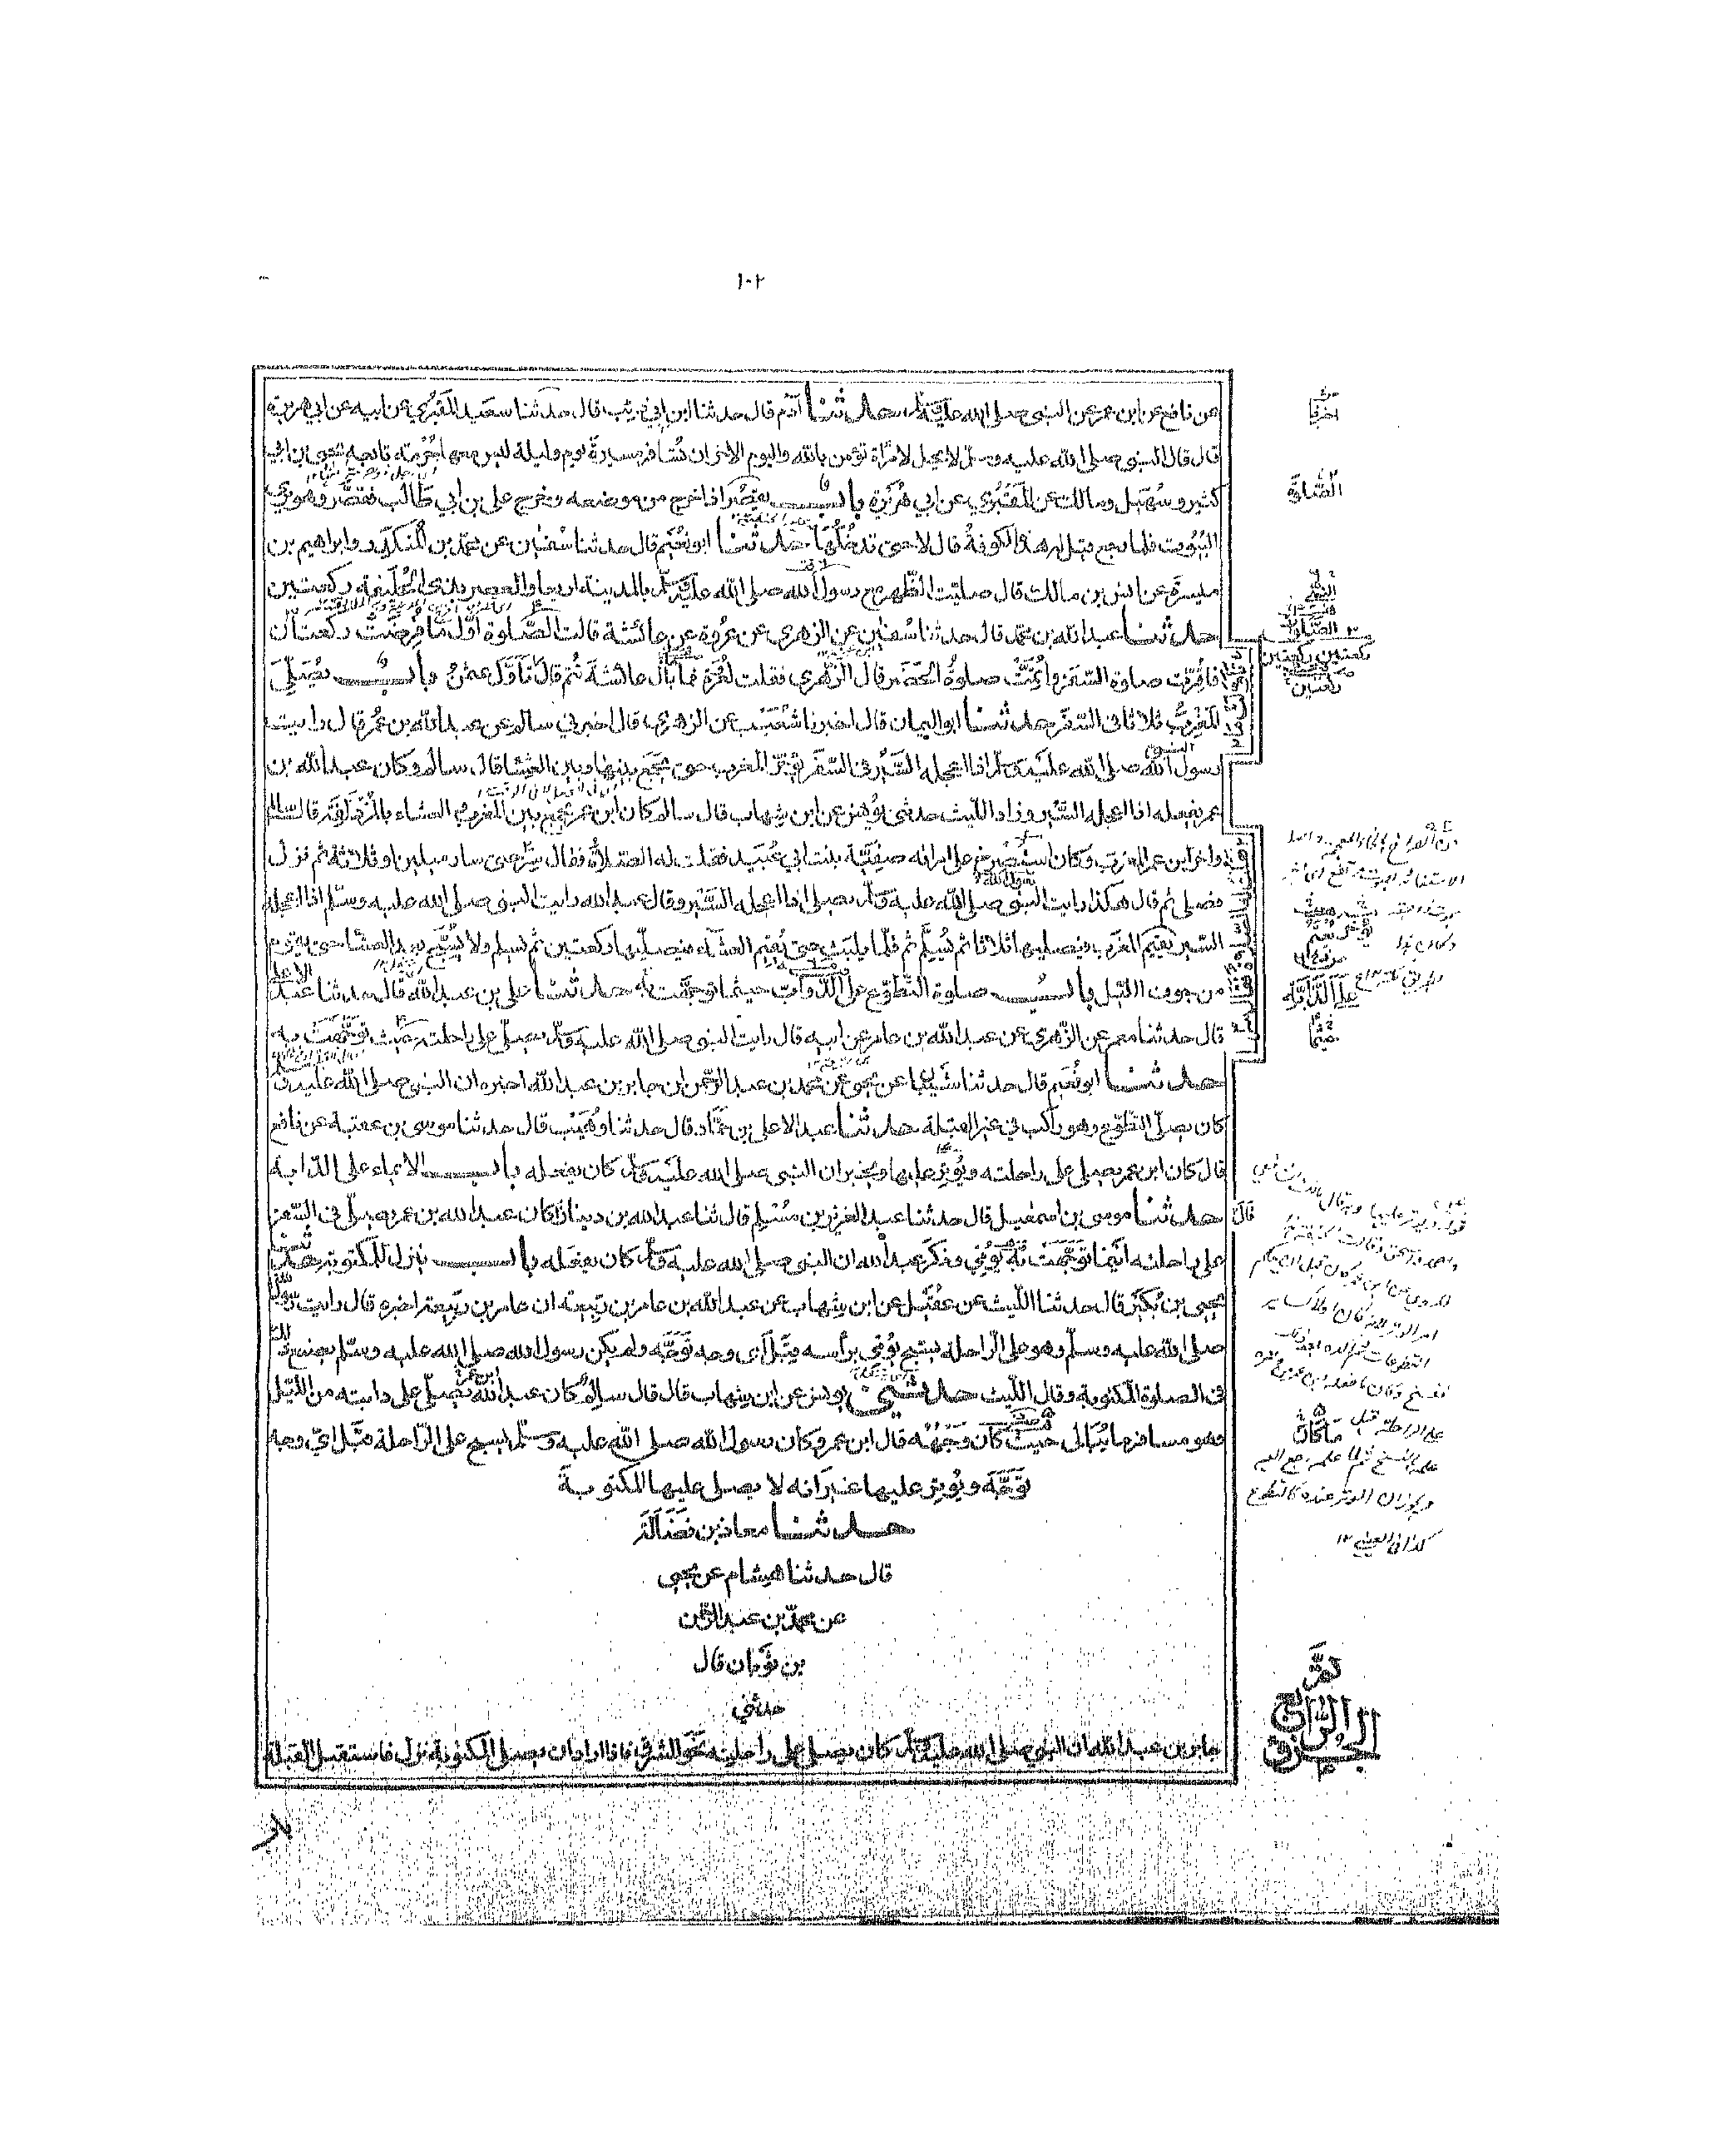 ١٠٢
عن نافع عن ابن عمر عن النبى صلى الله عليه وسلم حدثنا آدم قال حدثنا ابن ابي ذئب قال حدثنا سعيد المقبري عن ابيه عن ابي هريرة
قال قال النبى صلى الله عليه وسلم لا يحل لامرأة تؤمن بالله واليوم الاخر ان تسافر مسيرة يوم وليلة ليس معها حُرْمة تابعه يحيى بن ابي
كثير وسُهَيل ومالك عن المَقْبُري عن ابي هُرَيْرة باب يقصُر اذا خرج من موضعه وخرج على بن ابي طالب فقصَر وهو يرى
البُيُوت فلما رجع قيل له هذه الكوفةُ قال لا حتى ندخُلَها حدثنا ابو نُعَيم قال حدثنا سفيٰن عن محمد بن المُنكَدِر وابراهيم بن
ميسرة عن انس بن مالك قال صليت الظهر مع رسول الله صلى الله عليه وسلم بالمدينة اربعا والعصر بذى الحُلَيفة ركعتين
حدثنا عبد الله بن محمد قال حدثنا سُفيٰن عن الزهرى عن عُروة عن عائشة قالت الصَّلوة اَوّل ما فُرِضَتْ ركعتان
فاُقِرّت صلوة السفر واُتِمَّتْ صلوةُ الحَضَر قال الزُّهرى فقلت لعُروة فما بال عائشةَ تُتم قال تأوّلت ما تَاَوّل عثمٰنُ باب يُصَلِّى
المَغْرِبَ ثلاثا فى السفر حدثنا ابو اليمان قال اخبرنا شعَيْب عن الزهرى قال اخبرني سالم عن عبد الله بن عُمر قال رايت
رسول الله صلى الله عليه وسلم اذا اعجله السَّيْر فى السَّفَر يُؤَخّر المغرب حتى يجمع بينها وبين العِشا قال سالم وكان عبد الله بن
عمر يفعله اذا اعجله السَّيْر وزاد الليث حدثنى يُونس عن ابن شهاب قال سالم كان ابن عمر يجمع بين المغرب والعشاء بالمُزْدَلفة قال سالم
واخر ابن عمر المغرب وكان استُصرِخ على امراته صفيّة بنت ابي عُبَيد فقلت له الصلاة فقال سِرْ حتى سار ميلين او ثلاثة ثم نزل
فصلى ثم قال هكذا رايت النبى صلى الله عليه وسلم يصلى اذا اعجله السَّيْر وقال عبد الله رايت النبى صلى الله عليه وسلم اذا اعجله
السير يُقيم المغرب فيصليها ثلاثا ثم يُسلِّم ثم قلّما يلبث حتى يُقيم العشآء فيصليها ركعتين ثم يُسلم ولا يُسَبِّح بعد العشا حتى يقوم
من جوف الليل باب صلوة التَّطوّع على الدَّوآبّ حيثما توجَّهت به حدثنا على بن عبد الله قال حدثنا عبد الاعلى
قال حدثنا معمر عن الزهرى عن عبد الله بن عامر عن ابيه قال رايت النبى صلى الله عليه وسلم يصلى على راحلته حيث توجَّهَتْ به
حدثنا ابو نُعَيم قال حدثنا شَيبان عن يحيى عن محمد بن عبد الرحمن ان جابر بن عبد الله اخبره ان النبى صلى الله عليه وسلم
كان يصلى التطوّع وهو راكب فى غير القبلة حدثنا عبد الاعلى بن حَمّاد قال حدثنا وُهَيْب قال حدثنا موسى بن عقبة عن نافع
قال كان ابن عمر يصلى على راحلته ويُوتِر عليها ويخبر ان النبى صلى الله عليه وسلم كان يفعله باب الايماء على الدّابة
حدثنا موسى بن اسمعيل قال حدثنا عبد العزيز بن مُسْلِم قال ثنا عبد الله بن دينار قال كان عبد الله بن عمر يصلّى فى السَّفر
على راحلته اَيْنما توَجَّهَتْ به يُوْمِئ وذكر عبد الله ان النبى صلى الله عليه وسلم كان يفعَله باب ينزل للمكتوبة حدثنا
يحيى بن بُكَيْر قال حدثنا الليث عن عُقَيْل عن ابن شهاب عن عبد الله بن عامر بن ربيعة ان عامر بن ربيعة اخبره قال رايت رسول الله
صلى الله عليه وسلم وهو على الرّاحلة يسبّح يُؤمِئ برأسه قِبَل اَىّ وجه تَوَجَّه ولم يكن رسول الله صلى الله عليه وسلم يصنع ذلك
فى الصلوة المكتوبة وقال الليث حدثني يونس عن ابن شهاب قال قال سالم كان عبد الله بن عمر يصلّى على دابته من الليل
وهو مسافر ما يُبَالى حيث كان وَجْهُه قال ابن عمر وكان رسول الله صلى الله عليه وسلم يسبح على الرّاحلة قِبَل اىّ وجه
تَوَجَّهَ ويُوتِر عليها غير انه لا يصلى عليها المكتوبة
حدثنا معاذ بن فَضَالة
قال حدثنا هشام عن يحيى
عن محمد بن عبد الرحمن
بن ثَوْبان قال
حدثني
جابر بن عبد الله ان النبى صلى الله عليه وسلم كان يصلى على راحلته نحو الشرق فاذا اراد ان يصلى المكتوبة نزل فاستقبل القبلة
اخبرنا
الصَّلوة
ركعتين ركعتين
ركعتين
على الدَّابَّة
قال
ما كان
تمَّ
الجزؤ الرابع